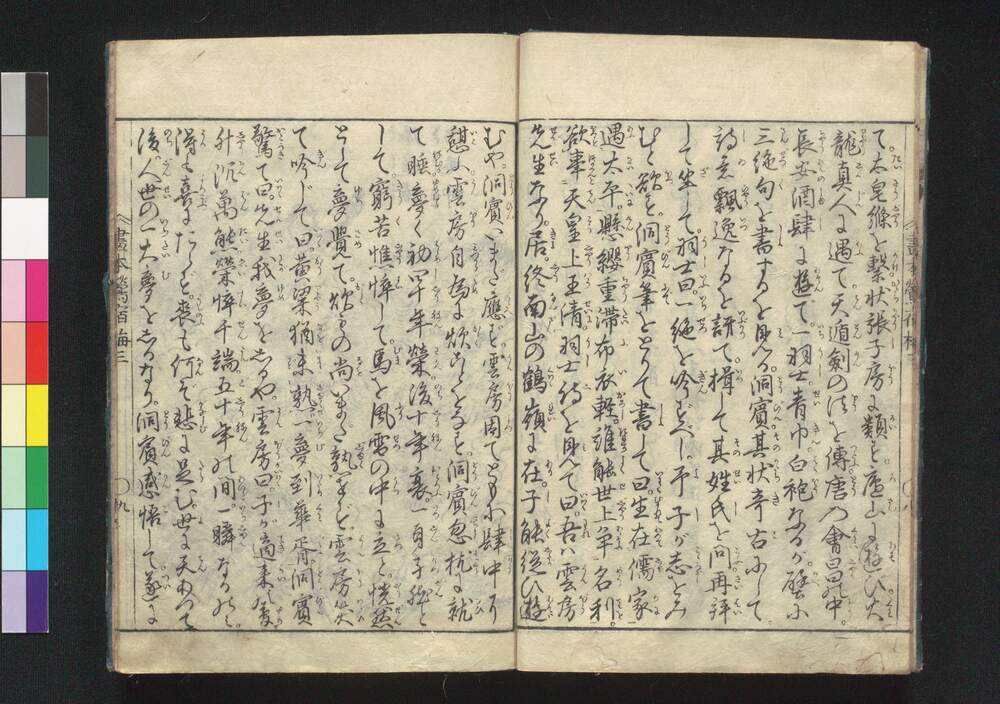 て太皂絛を繋状張子房に類と廬山に遊び火
龍真人に遇て天遁剣の法を傳唐の會昌中
長安酒肆に遊て一羽士青巾白袍なるが壁に
三絶句を書するを見る洞賓其状奇古にして
詩意飄逸なるを訝て揖して其姓氏を問再拝
して坐して羽士曰一絶を吟ずべし予子が志をみ
むと欲と洞賓筆をとりて書して曰生在儒家
遇太平懸纓重滞布衣軽誰能世上争名利
欲事天皇上玉清羽士詩を見て曰吾ハ雲房
先生なり居終南山の鶴嶺に在子能従ひ遊
むや洞賓いまだ應ぜず雲房因てともに肆中に
憩ふ雲房自為に炊ことをなす洞賓忽枕に就
て睡夢く初四十年榮後十年衰一身子然と
して窮苦憔悴して馬を風雪の中に立と恍然
として夢覺て炊もの尚いまだ熟せずと雲房笑
て吟じて曰黄粱猶未熟一夢到華胥洞賓
驚て曰先生我夢をしるや雲房曰子が適来の夢
升沉萬態榮悴千端五十年の間一瞬なるのミ
得も喜にたらず喪も何ぞ悲に足む世に天あつて
後人世の一大夢をしるなり洞賓感悟して遂に
畫本鶯宿梅三
九